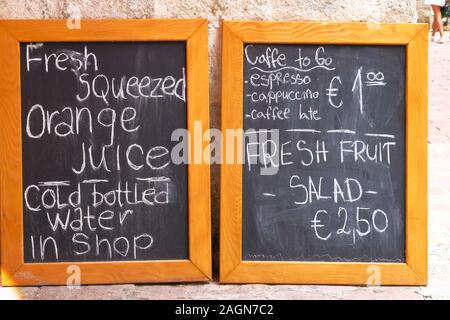 Fresh
Squeezed
Orange
Juice
Cold bottled
Water
In Shop
Caffe to Go
-espresso
-cappuccino
-caffee latte
€ 1.00
FRESH FRUIT
- SALAD -
€ 2,50
alamy
www.alamy.com
2AGN7C2